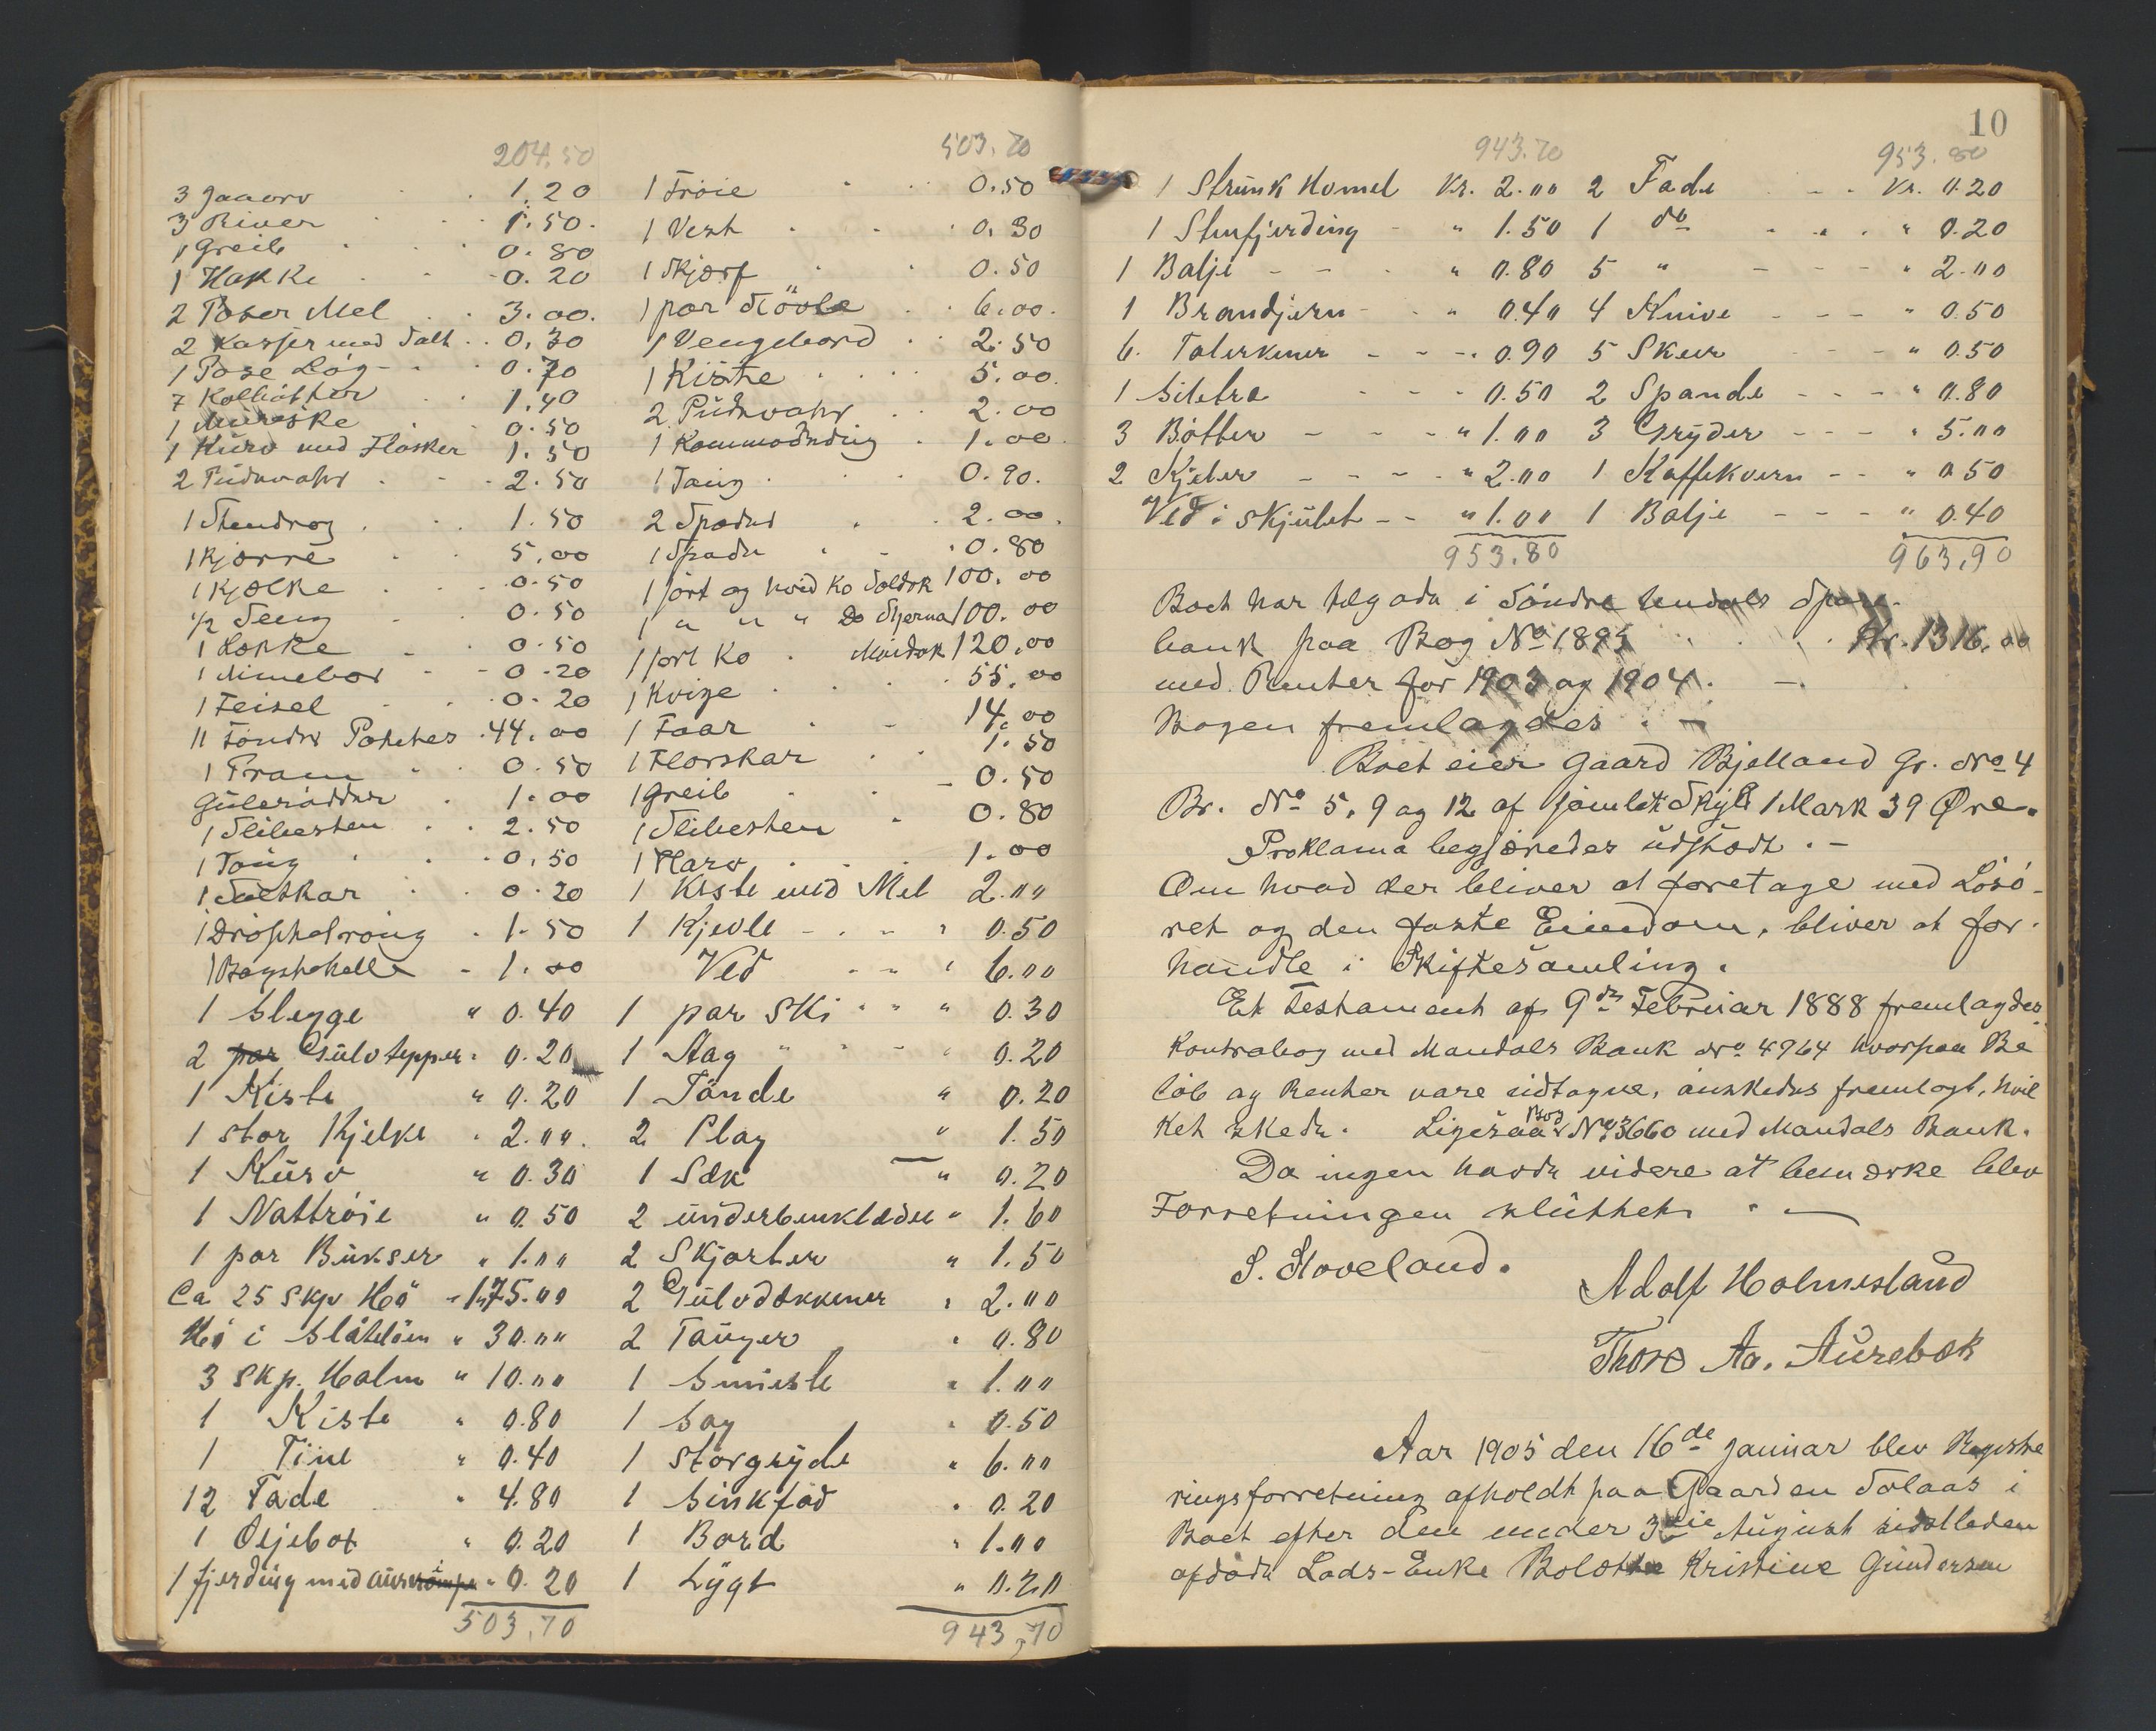 204.50
3 Jaaorv 1.20
3 River 1.50.
1 Greib 0.80
1 Hakke 0.20
2 Poser Mel 3.00.
2 Kasser med Salt 0.30
1 Pose Løg 0.70
7 Kolbøtter 1.40
1 0.50
1 Kurv med Flasker 1.50
2 Pudevahr 2.50
1 Stendrog 1.50
1 Kjærre 5.00
1 Kjælke 0.50
1/2 Seng 0.50
1 0.50
1 0.20
1 Feisel 0.20
11 Tönder Poteter 44.00
1 Pram 0.50
Gulerödder 1.00
1 Slibesten 2.50
1 Toug 0.50
1 Saltkar 0.20
1 1.50
1 1.00
1 Slegge " 0.40
2 par Gulvtepper " 0.20
1 Kiste " 0.20
1 stor Kjelke " 2.00.
1 Kurv " 0.30
1 Nattröie " 0.50
1 par Bukser " 1.00
Ca 25 Skp Hö " 175.00
Hö i Slåtelöen " 30.00
3 Skp. Halm " 10.00
1 Kiste " 0.80
1 Tine " 0.40
12 Fade " 4.80
1 Oljebot " 0.20
1 fjerding med " 0.20
503.70
503.70
1 Tröie 0.50
1 Vest 0.30
1 Skjærf 0.50
1 par Støvle 6.00.
1 Vengebord 2.50
1 Kiste 5.00.
2 Pudevahr 2.00
1 1.00
1 Taug 0.90.
2 Spader 2.00.
1 Spade 0.80
1 sort og hvid Ko Soldok 100.00
1 " " " Do Stjerna 100.00
1 sort Ko Maidok 120.00
1 Kvige 55.00
1 Faar 14.00
1 Florskar 1.50
1 Greib 0.50
1 Slibesten 0.80
1 Harv 1.00
1 Kiste med Mel 2.00
1 Kjevle " 0.50
Ved " 6.00
1 par Ski " 0.30
1 Aag " 0.20
1 Tönde " 0.20
2 Plag " 1.50
1 Sæk " 0.20
2 underbenklæder " 1.60
2 Skjorter " 1.50
2 Gulvdækkener " 2.00
2 Tauger " 0.80
1 Smieste " 1.00
1 Sag " 0.50
1 Storgryde " 6.00
1 Sinkfad " 0.20
1 Bord " 1.00
1 Lygt " 0.20
943,70
10
943.70
1 Strunk Homel Kr. 2.00
1 Stutfjerding " 1.50
1 Balje " 0.80
1 Brandjern " 0.40
6 Talerkener " 0.90
1 Siletra 0.50
3 Bøtter " 1.00
2 Kjeler " 2.00
Ved i Skjulet " 1.00
953.80
953.80
2 Fade Kr. 0.20
1 do " 0.20
5 " " 2.00
4 Knive " 0.50
5 Skeer " 0.50
2 Spande " 0.80
3 Gryder " 5.00
1 Kaffekvern " 0.50
1 Balje " 0.40
963,90
Boet har tilgode i Söndre Undals Spare-
bank paa Bog No 1895 Kr. 1316.00
med Renter for 1903 og 1904. -
Bogen fremlagdes. -
Boet eier Gaard Bjelland Gr. No 4
Br. No 5, 9 og 12 af samlet Skyld 1 Mark 39 Øre.
Proklama begjæredes udstædt. -
Om hvad der bliver at foretage med Løsø-
ret og den faste Eiendom, bliver at for-
handle i Skiftesamling.
Et Testament af 9de Februar 1888 fremlagdes.
Kontrabog med Mandals Bank No 4964 hvorpaa Be
løb og Renter vare udtagne, ønskedes fremlagt, hvil
ket skede. Ligesaa Bog No 3660 med Mandals Bank.
Da ingen havde videre at bemærke blev
Forretningen sluttet. -
S. Hoveland.
Adolf Holmesland
Thore Aa. Aurebæk
Aar 1905 den 16de Januar blev Registre
ringsforretning afholdt paa Gaarden Solaas i
Boet efter den under 3die August sidstleden
afdøde Lods-Enke Bolette Kristine Gundersen